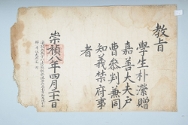 教旨
學生朴濴贈
嘉善大夫戶
曹參判兼同
知義禁府事
者
崇禎八年四月十二日